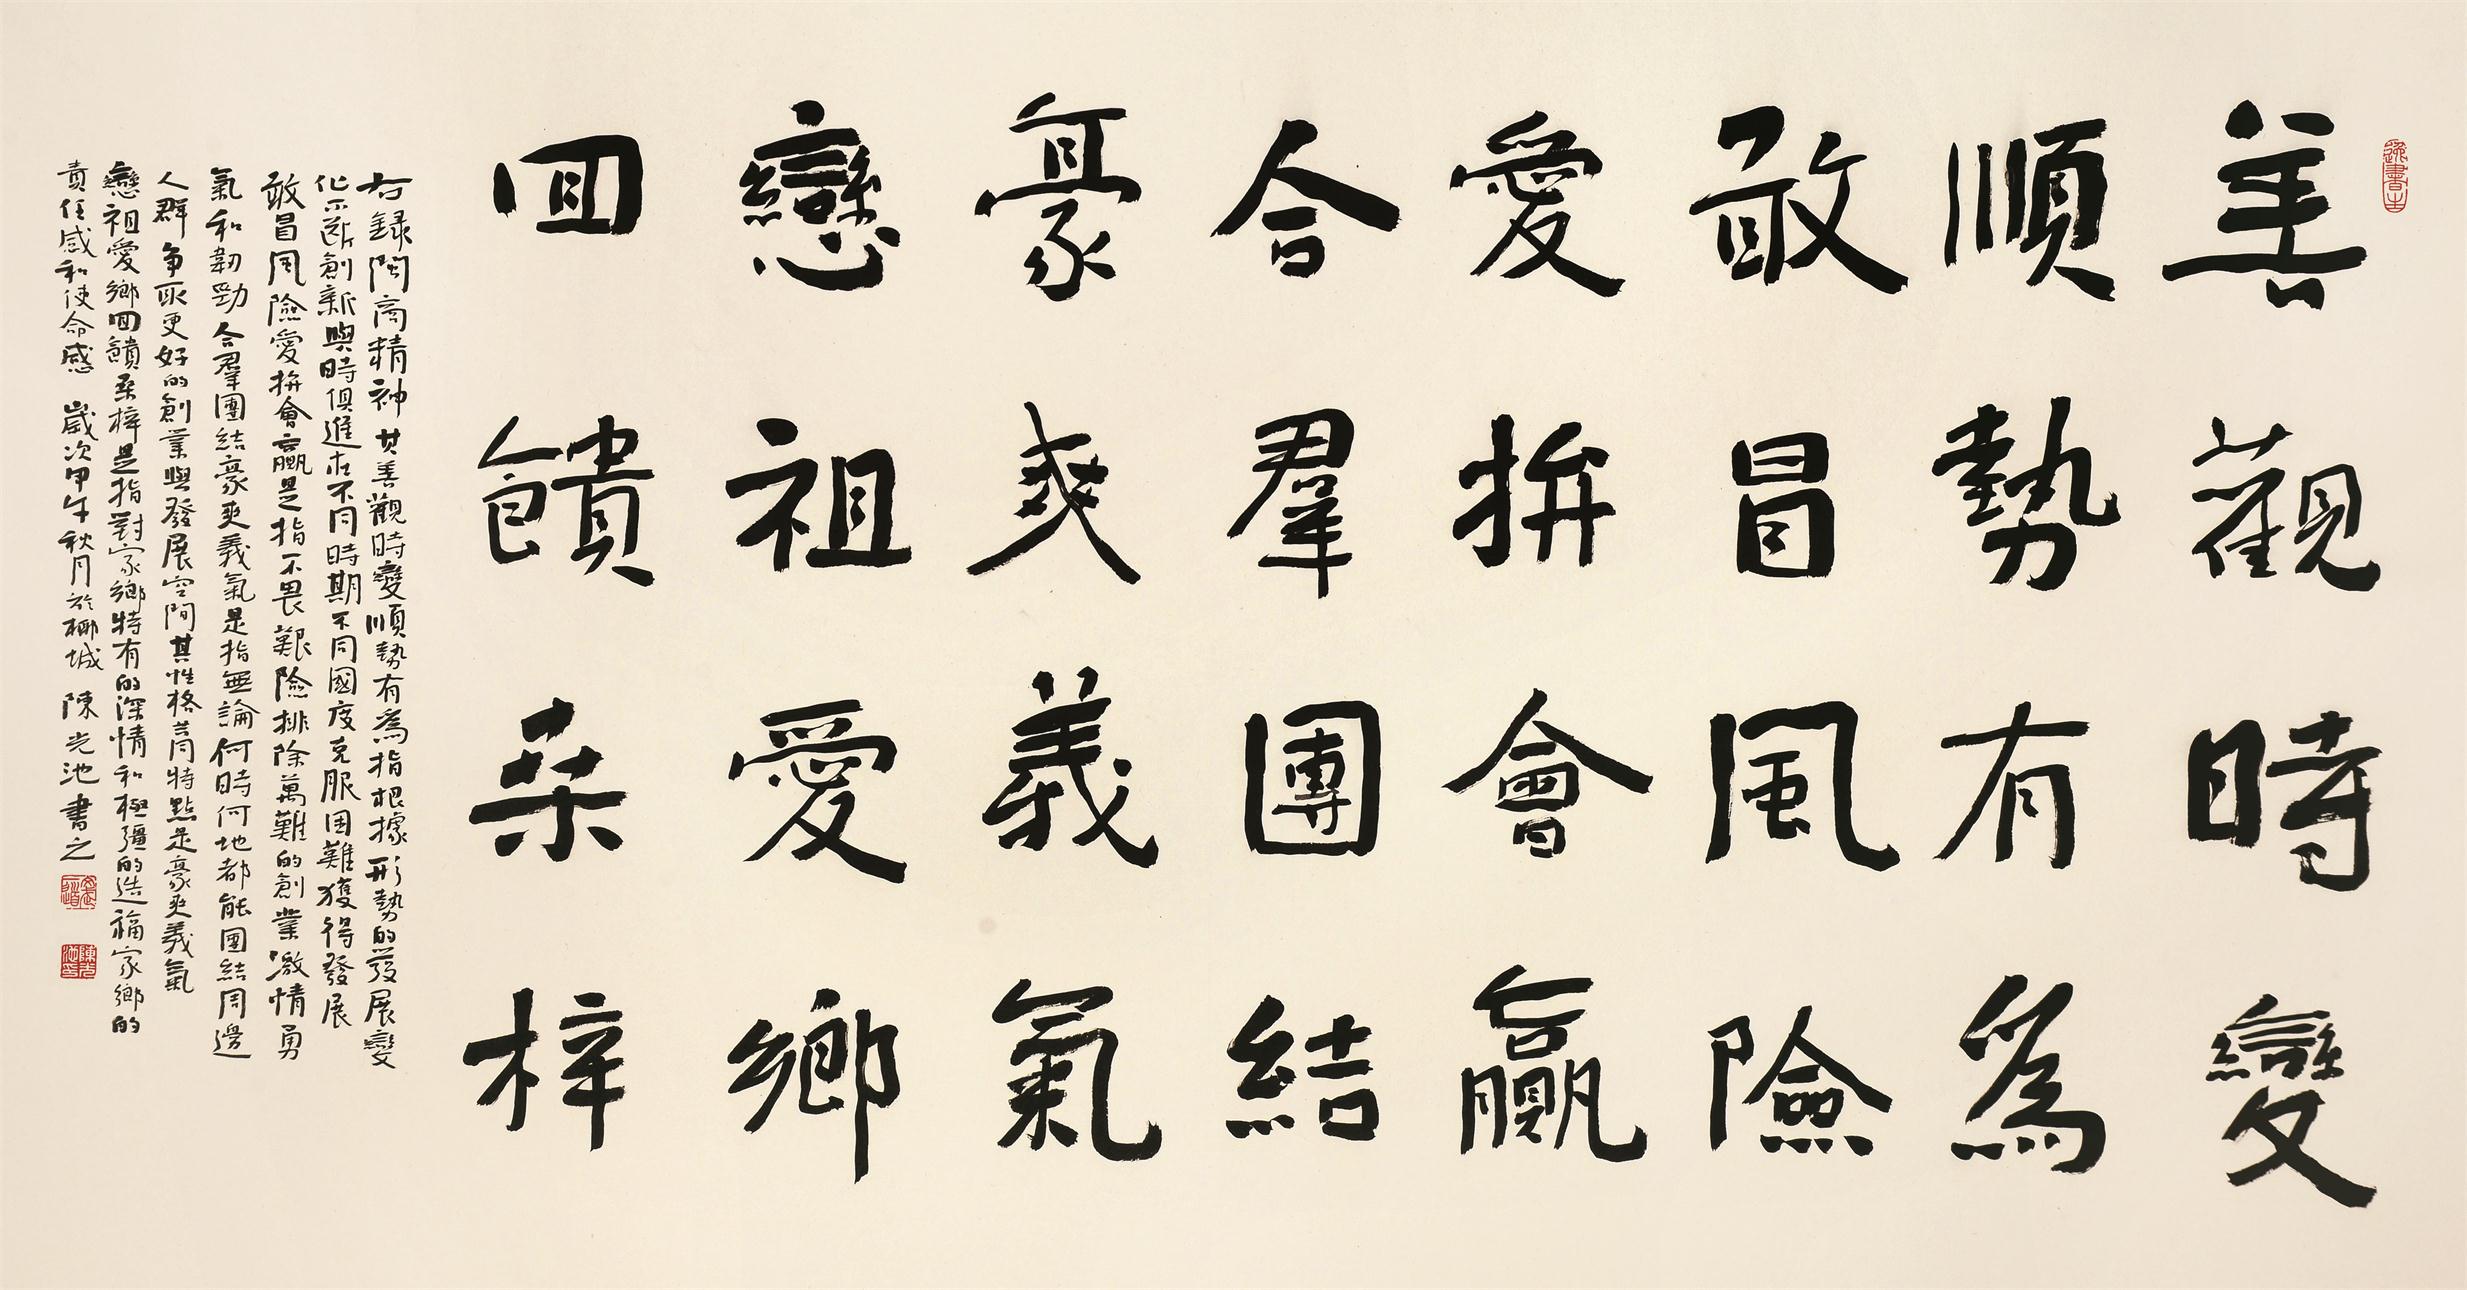 善觀時變
順勢有為
敢冒風險
愛拚會贏
合羣團結
豪爽義氣
戀祖愛鄉
回饋桑梓
右錄閩商精神其善觀時變順勢有為指根據形勢的發展變
化不斷創新與時俱進在不同時期不同國度克服困難獲得發展
敢冒風險愛拚會贏是指不畏艱險排除萬難的創業激情勇
氣和韌勁合羣團結豪爽義氣是指無論何時何地都能團結周邊
人群爭取更好的創業與發展空間其性格特點是豪爽義氣
戀祖愛鄉回饋桑梓是指對家鄉特有的深情和極強的造福家鄉的
責任感和使命感 歲次甲午秋月於榔城 陳光池書之